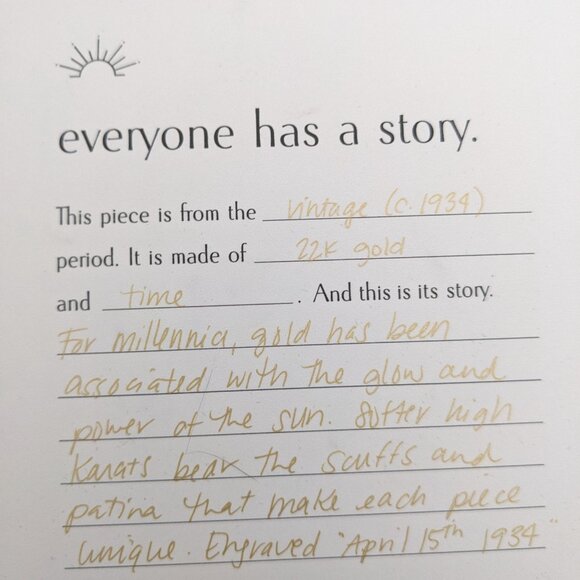 everyone has a story.
This piece is from the vintage (c. 1934)
period. It is made of 22K gold
and time . And this is its story.
For millennia, gold has been
associated with the glow and
power of the sun. Softer high
Karats bear the scuffs and
patina that make each piece
unique. Engraved "April 15th 1934"